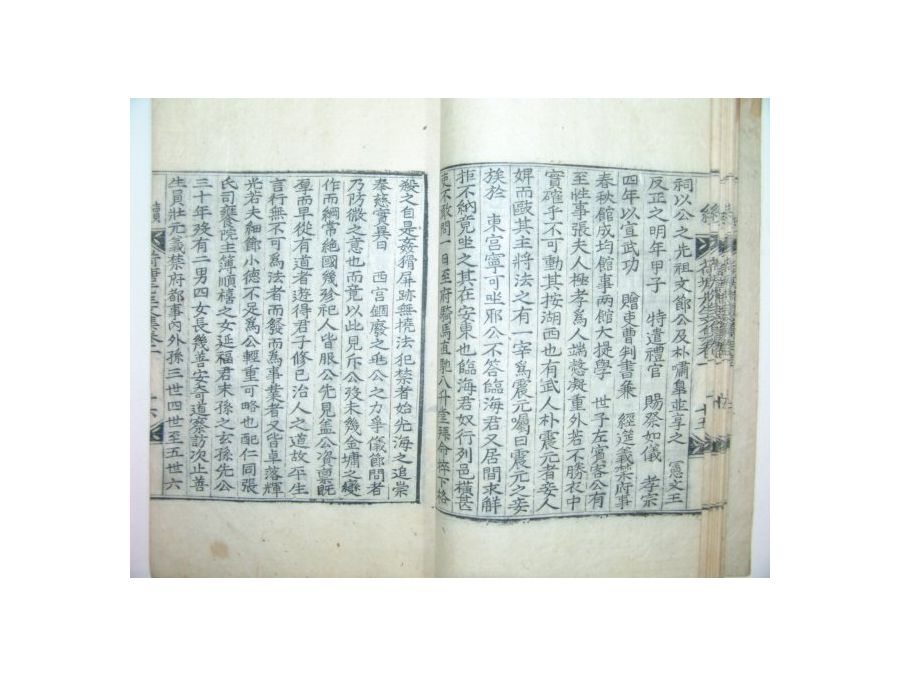 祠以公之先祖文節公及朴嘯皐並享之 憲文王
反正之明年甲子 特遣禮官 賜祭如儀 孝宗
四年以宣武功 贈吏曹判書兼 經筵義禁府事
春秋館成均館事兩館大提學 世子左賓客公有
至性事張夫人極孝爲人端慤凝重外若不勝衣中
實確乎不可動其按湖西也有武人朴震元者妾人
婢而毆其主將法之有一宰爲震元囑曰震元之妾
族於 東宮寧可坐邪公不答臨海君又居間求解
拒不納竟坐之其在安東也臨海君奴行列邑橫甚
使不敢問一日至府騎馬直馳入升堂 命捽下
殺之自是姦猾屛跡無撓法犯禁者始光海之追崇
恭慈實異日 西宮錮廢之 公之力爭儀節間者
乃防微之意也而竟以此見斥公歿未幾金墉之變
作而綱常絶國幾殄祀人皆服公先見盖公資稟旣
厚而早從有道者遊得君子修已治人之道故平生
言行無不可爲法者而發而爲事業者又皆卓落輝
光若夫細節小德不足爲公輕重可略也配仁同張
氏司饔院主簿順禧之女延福君末孫之玄孫先公
三十年歿有二男四女長幾善安奇道察訪次止善
生員壯元義禁府都事內外孫三世四世至五世六